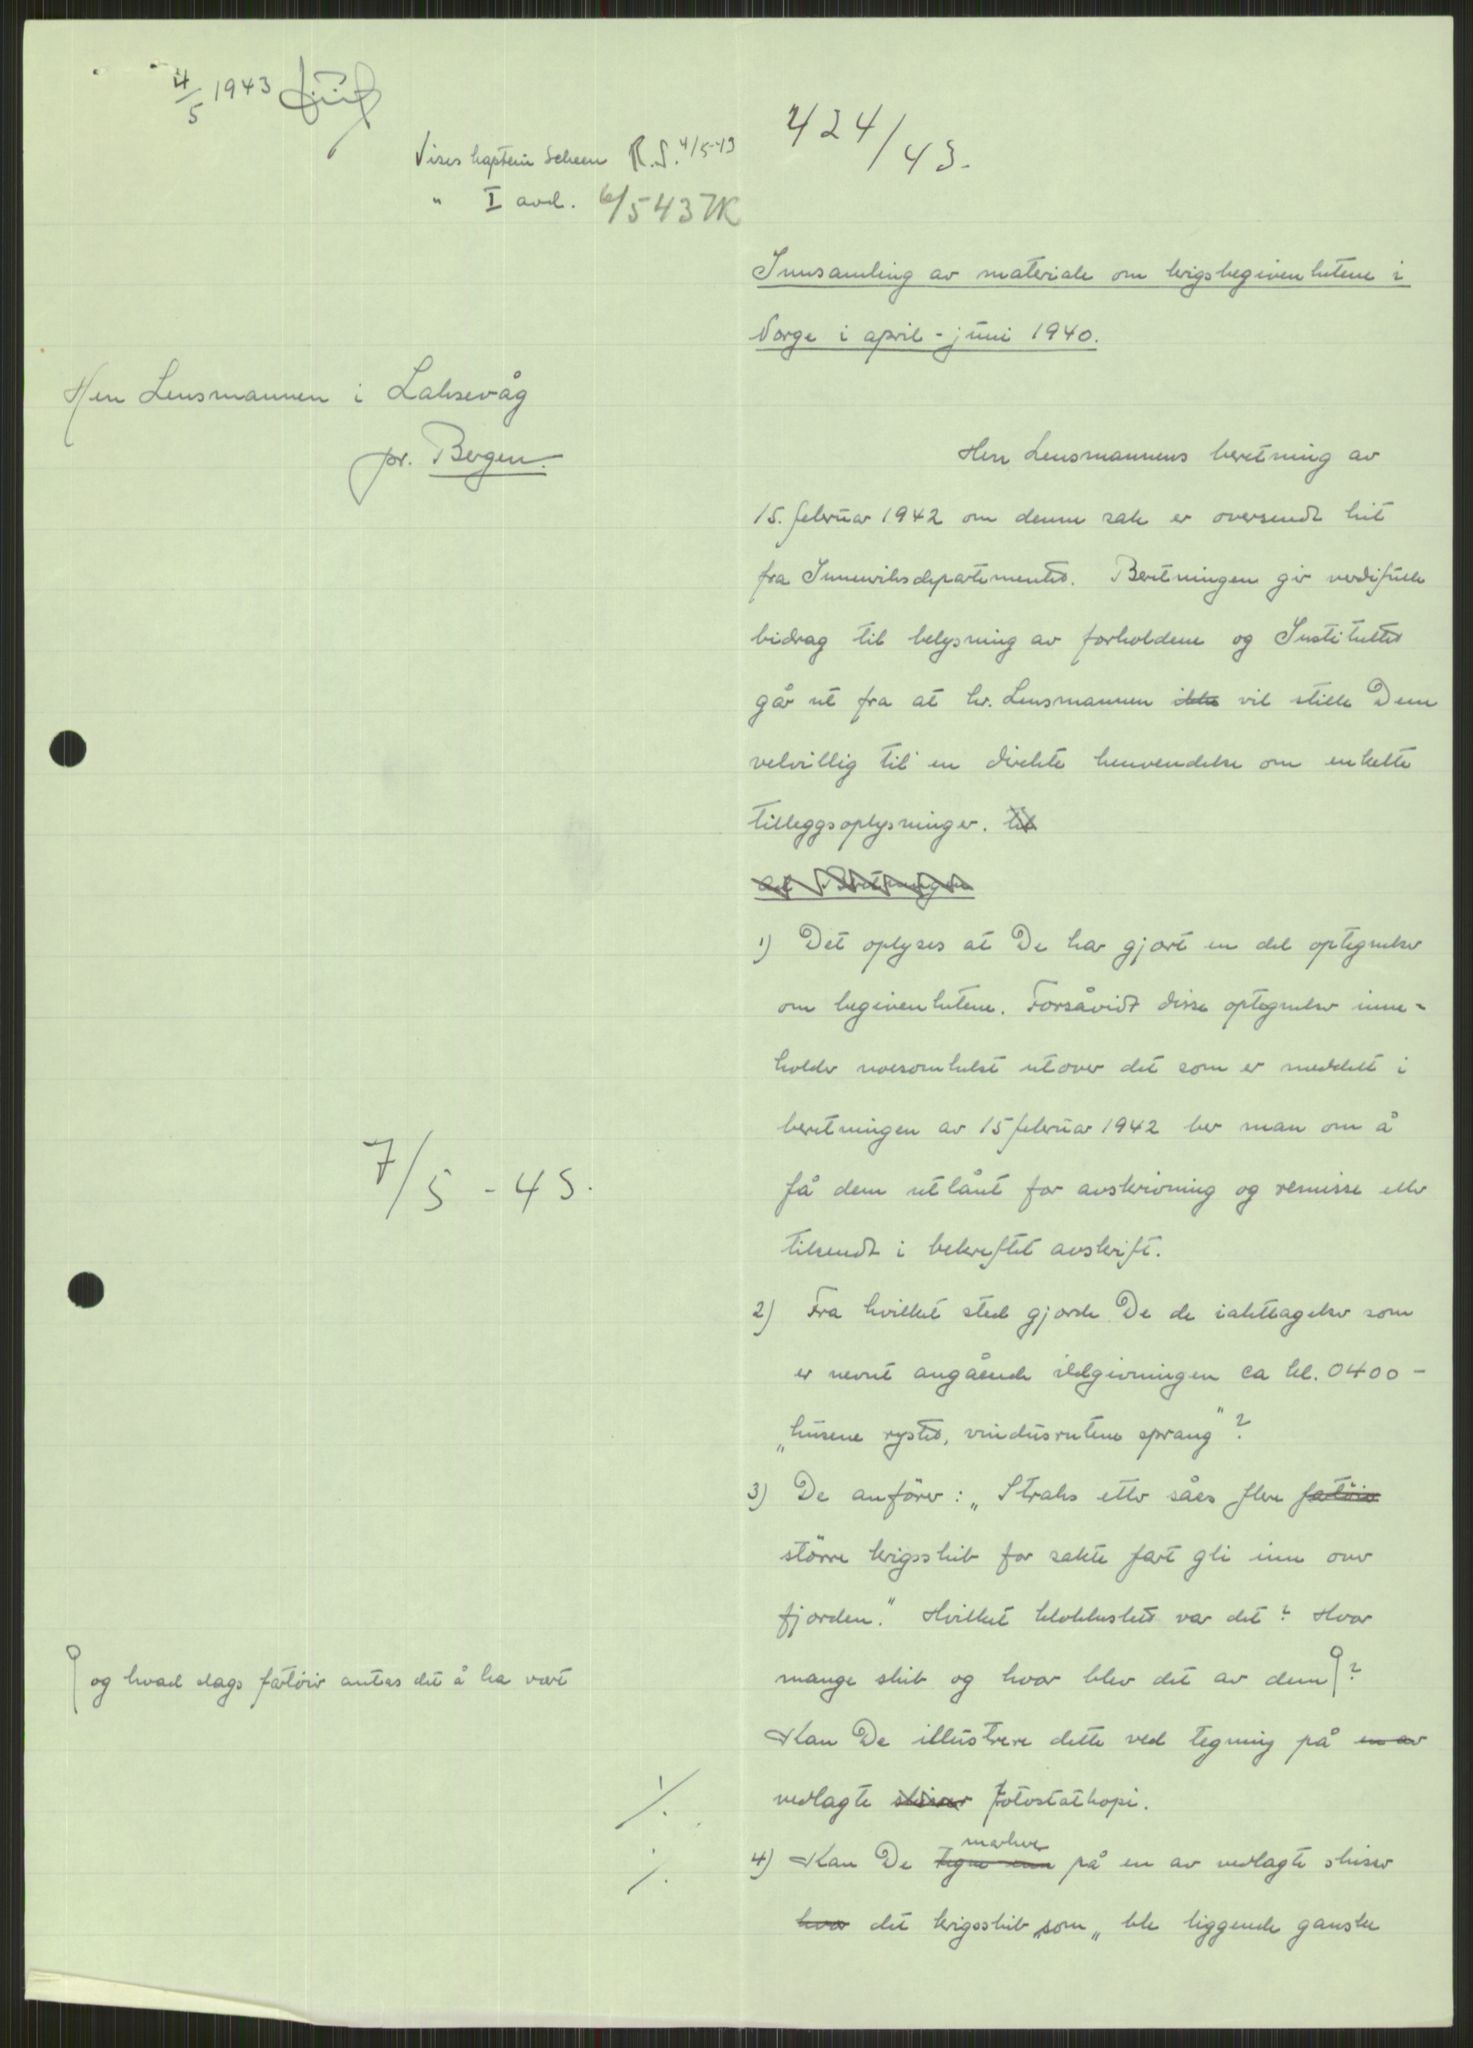 4/5 1943
Vises kaptein Scheen R.S. 4/5-43
" I avd. 6/5 43 HK
424/43.
Innsamling av materiale om krigsbegivenhetene i
Norge i april-juni 1940.
Herr Lensmannen i Laksevåg
pr. Bergen.
Herr Lensmannens beretning av
15. februar 1942 om denne sak er oversendt hit
fra Innenriksdepartementet. Beretningen gir verdifulle
bidrag til belysning av forholdene og Instituttet
går ut fra at hr. Lensmannen ikke vil stille Dem
velvillig til en direkte henvendelse om enkelte
tilleggsoplysninger. til
1) Det oplyses at De har gjort en del optegnelser
om begivenhetene. Forsåvidt disse optegnelser inne-
holder noesomhelst utover det som er meddelt i
beretningen av 15 februar 1942 ber man om å
få dem utlånt for avskrivning og remisse eller
tilsendt i bekreftet avskrift.
7/5 - 43.
2) Fra hvilket sted gjorde De de iakttagelser som
er nevnt angående ildgivningen ca kl. 0400 -
„husene rystet, vindusrutene sprang"?
3) De anförer: „Straks etter såes flere fartöier
större krigsskib for sakte fart gli inn over
fjorden." Hvilket klokkeslett var det? Hvor
mange skib og hvor blev det av dem?
og hvad slags fartöier antas det å ha vært
Kan De illustrere dette ved tegning på en av
vedlagte skisser fotostatkopi.
./.
4) Kan De tegne inn markere på en av vedlagte skisser
./.
hvor det krigsskib „som „ ble liggende ganske